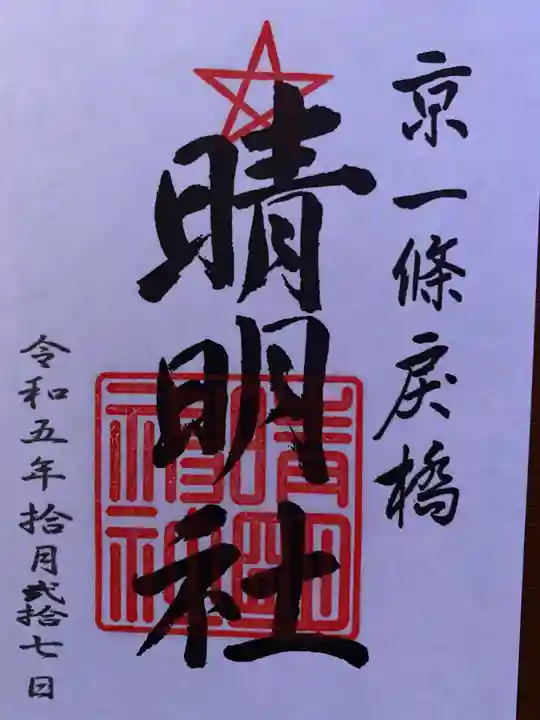 京一條戻橋
晴明社
晴明
神社
令和五年拾月弐拾七日